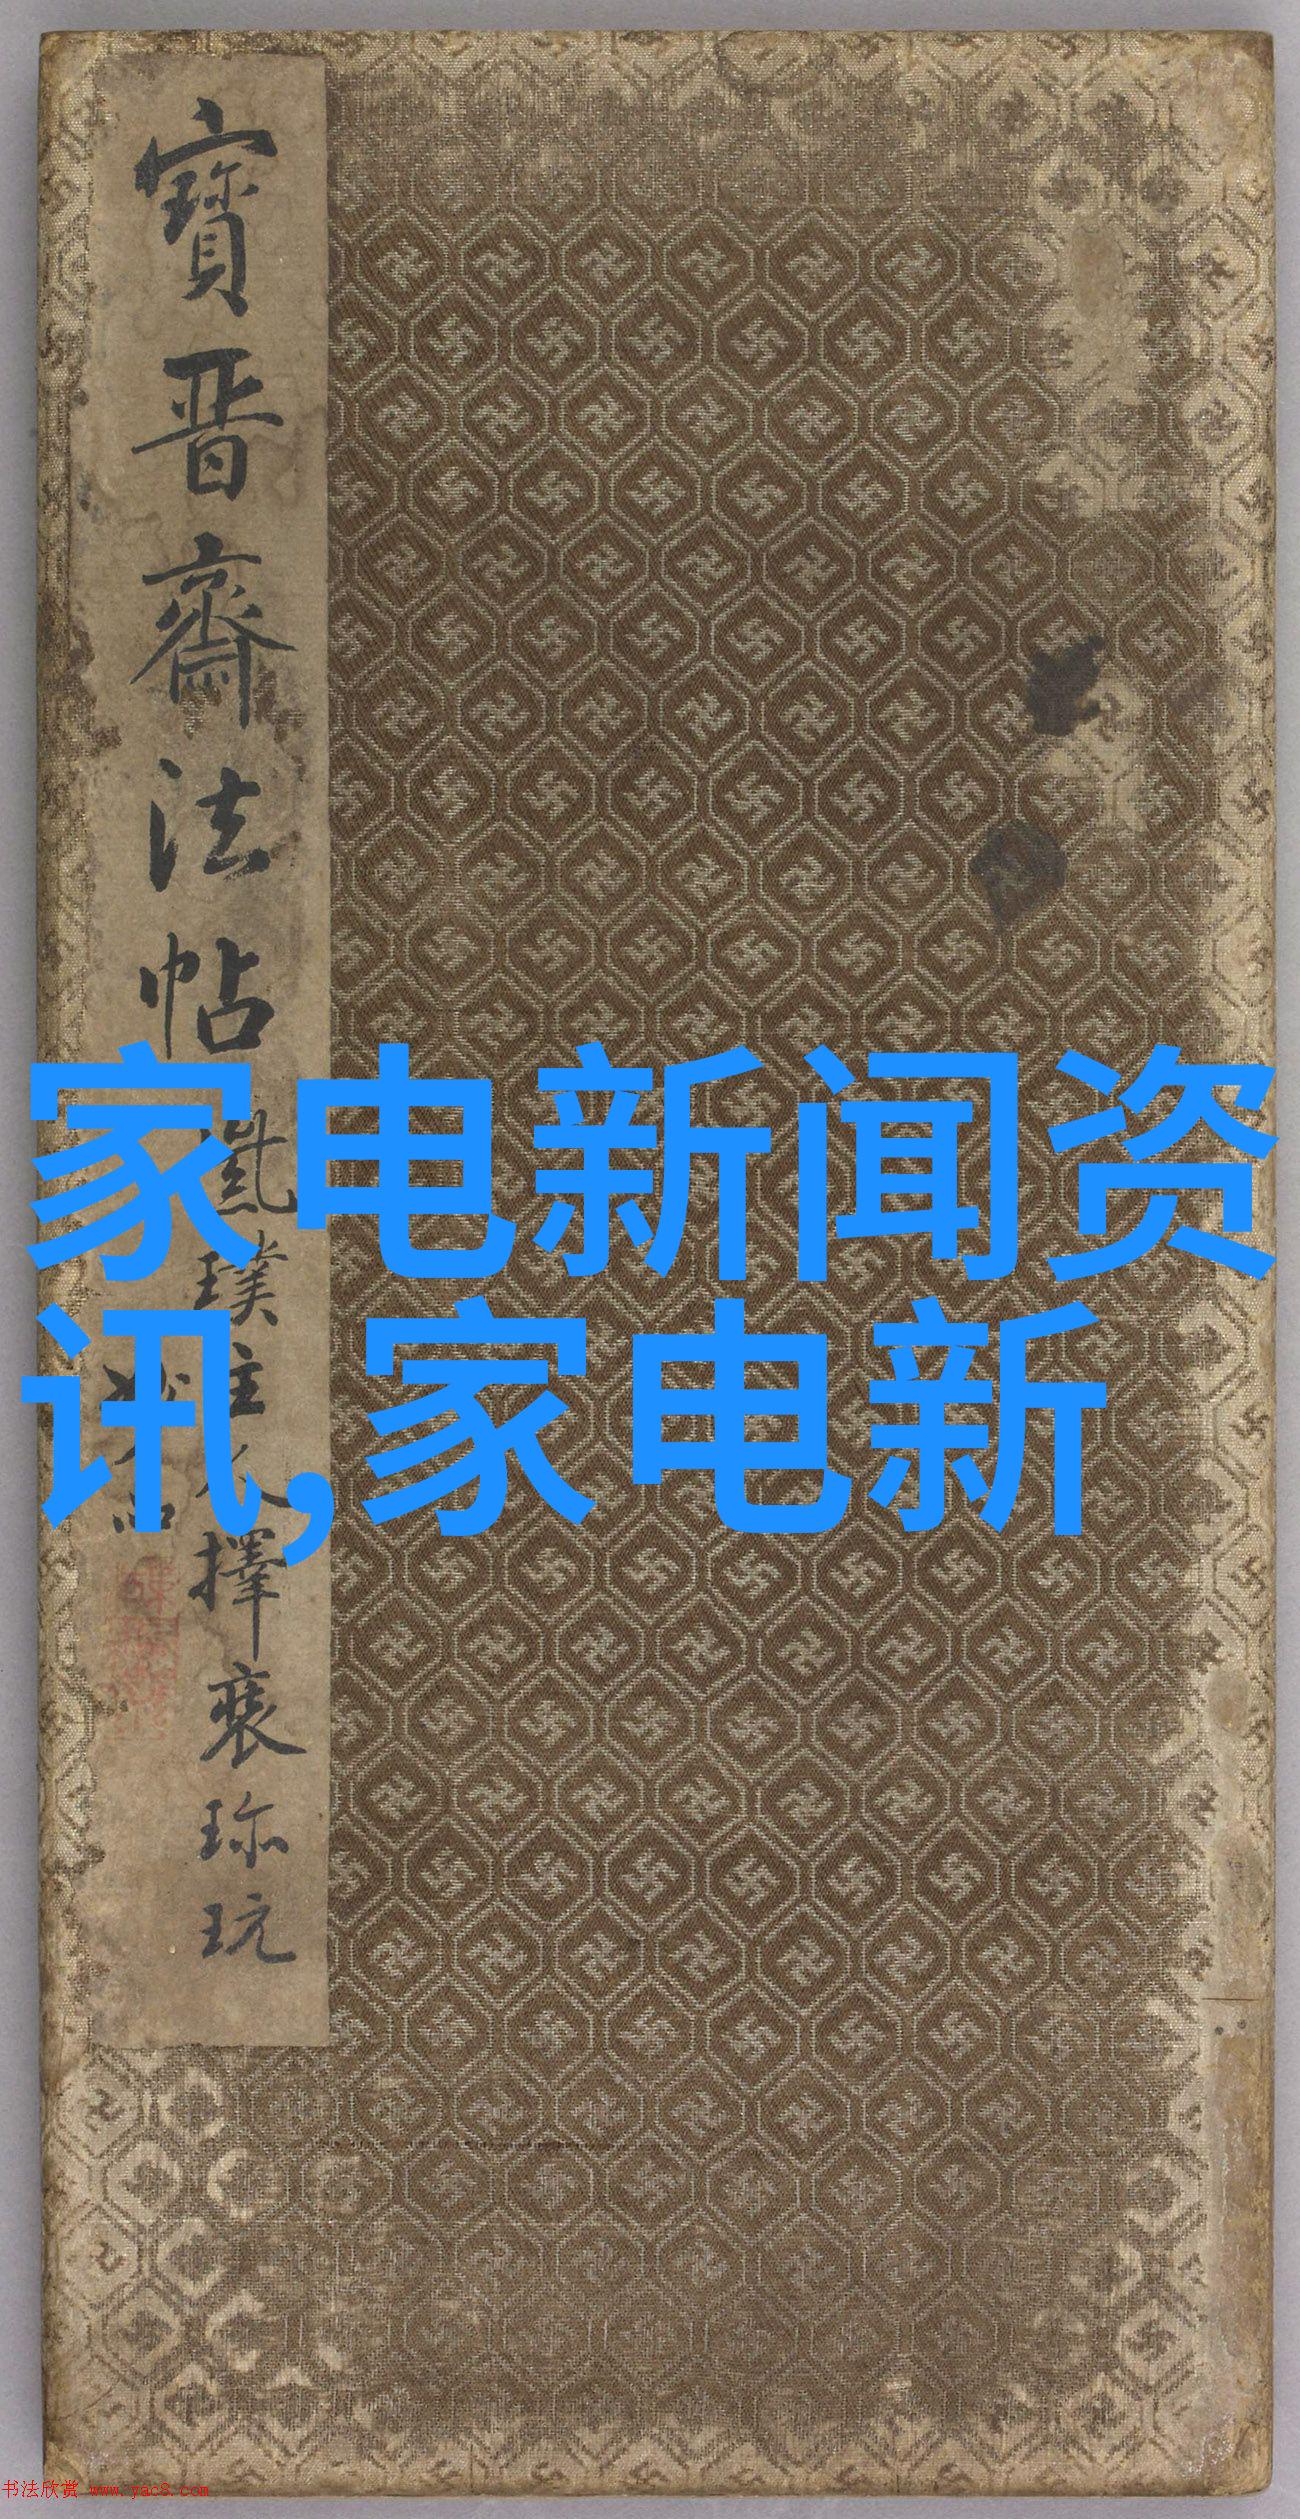 寳晋齋法帖
璞主人擇裘珎玩
家电新闻资
讯,家电新
书法欣赏 www.yac8.com